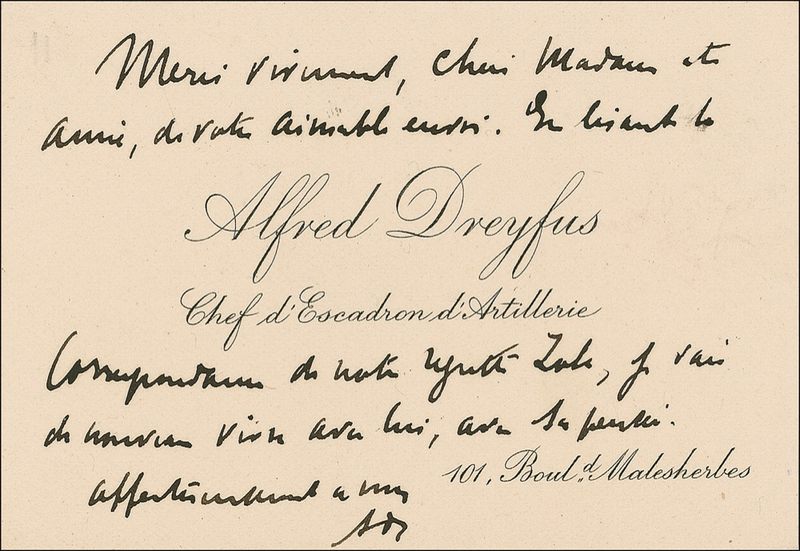 Merci vivement, chère Madame et
amie, de votre aimable envoi. En lisant la
Alfred Dreyfus
Chef d'Escadron d'Artillerie
Correspondance de notre regretté Zola, je vais
de nouveau vivre avec lui, avec sa pensée.
affectueusement à vous
101, Boul.d Malesherbes
ADr